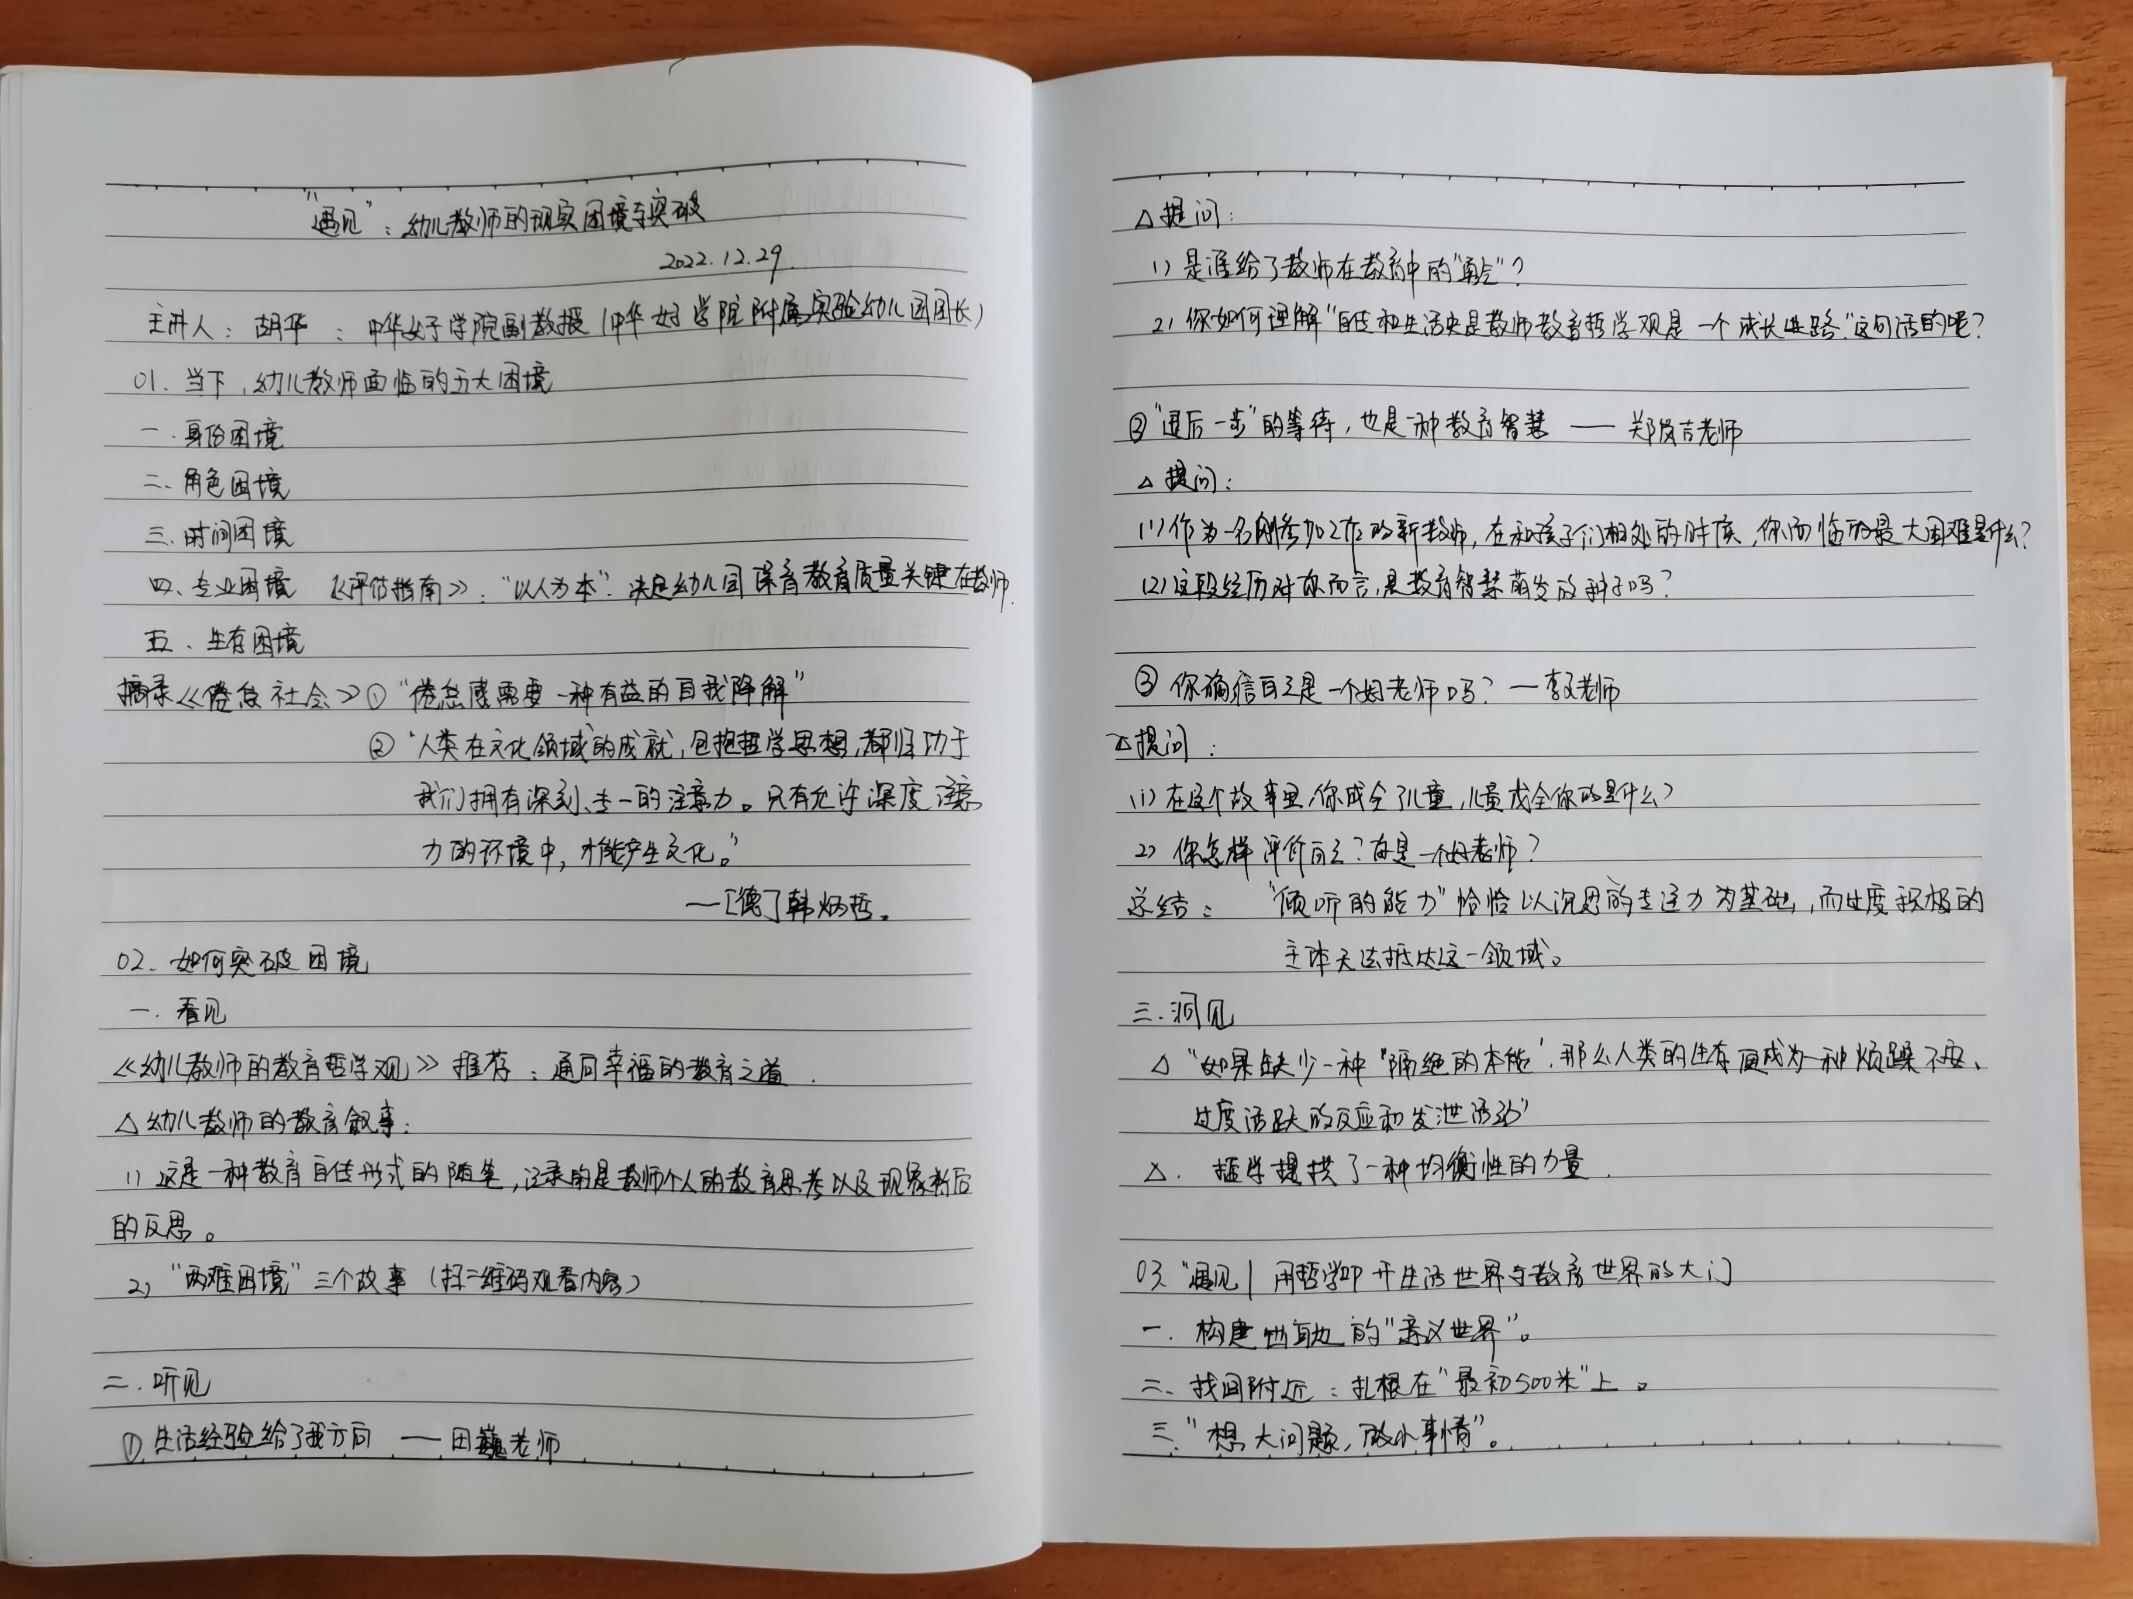 “遇见”：幼儿教师的现实困境与突破
2022.12.29.
主讲人：胡华：中华女子学院副教授（中华女子学院附属实验幼儿园园长）
01.当下,幼儿教师面临的五大困境
一.身份困境
二、角色困境
三.时间困境
四、专业困境 《评估指南》：“以人为本”：决定幼儿园保育教育质量关键在教师.
五、生存困境
摘录《倦怠社会》①“倦怠感需要一种有益的自我降解”
②“人类在文化领域的成就,包括哲学思想,都归功于
我们拥有深刻、专一的注意力。只有允许深度注意
力的环境中,才能产生文化。”
—[德]韩炳哲。
02.如何突破困境
一.看见
《幼儿教师的教育哲学观》推荐：通向幸福的教育之道.
△幼儿教师的教育叙事：
1）这是一种教育自传形式的随笔,记录的是教师个人的教育思考以及现象背后
的反思。
2）“两难困境”三个故事（扫二维码观看内容）
二.听见
①.生活经验给了我方向 ——田巍老师
△提问：
1）是谁给了教师在教育中的“勇气”?
2）你如何理解“自传和生活史是教师教育哲学观是一个成长进路.”这句话的呢?
②“退后一步”的等待,也是一种教育智慧 —— 郑老师
△提问：
（1）作为一名刚参加工作的新教师,在和孩子们相处的时候,你面临的最大困难是什么?
（2）这段经历对你而言,是教育智慧萌发的种子吗?
③你确信自己是一个好老师吗?—李老师
△提问：
（1）在这个故事里,你成全了儿童,儿童成全你的是什么?
2）你怎样评价自己?自己是一个好老师?
总结：“倾听的能力”恰恰以沉思的专注力为基础,而过度积极的
主体无法抵达这一领域。
三.洞见
△“如果缺少一种‘隔绝的本能’,那么人类的生存便成为一种烦躁不安、
过度活跃的反应和发泄活动”
△.哲学提供了一种均衡性的力量.
03.“遇见|用哲学叩开生活世界与教育世界的大门
一.构建出自己的“意义世界”。
二、找回附近：扎根在“最初500米”上。
三、“想大问题,做小事情”。